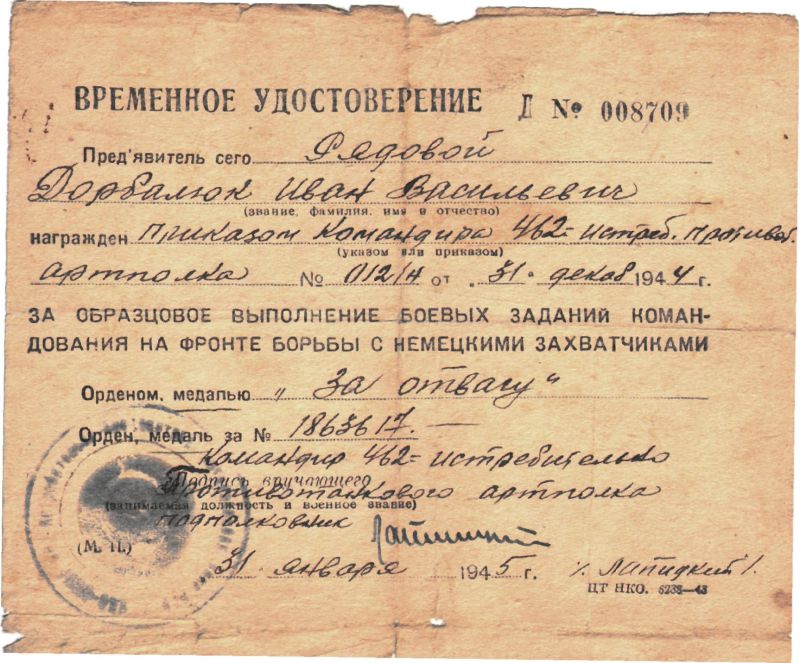 ВРЕМЕННОЕ УДОСТОВЕРЕНИЕ Д № 008709
Пред'явитель сего Рядовой
Дорбалюк Иван Васильевич
(звание, фамилия, имя и отчество)
награжден приказом командира 462 истреб. противот.
(указом или приказом)
артполка № 012/4 от „31" декаб 1944 г.
ЗА ОБРАЗЦОВОЕ ВЫПОЛНЕНИЕ БОЕВЫХ ЗАДАНИЙ КОМАН-
ДОВАНИЯ НА ФРОНТЕ БОРЬБЫ С НЕМЕЦКИМИ ЗАХВАТЧИКАМИ
Орденом, медалью „За отвагу"
Орден, медаль за № 1863617.
Командир 462 истребительно
Подпись вручающего
противотанкового артполка
(занимаемая должность и военное звание)
подполковник
(М. П.)
31 января 1945 г. /Лапицкий/.
ЦТ НКО. 6238—43